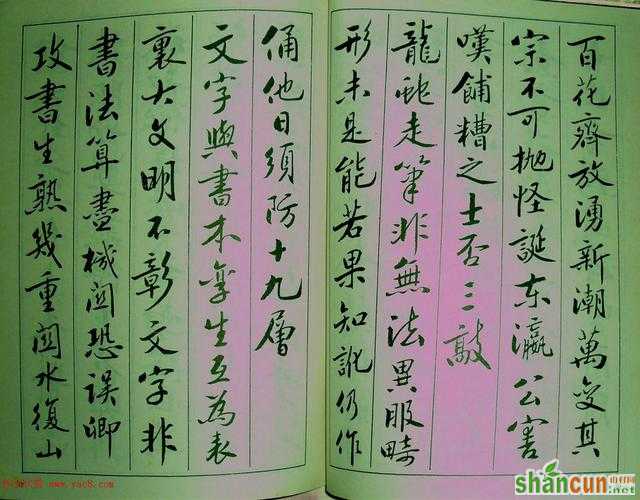 百花齊放湧新潮萬變其
宗不可拋怪誕東瀛公害
嘆餔糟之士否三敲
龍蛇走筆非無法異服畸
形未是能若果知訛仍作
俑他日須防十九層
文字與書本孿生互為表
裏大文明不彰文字非
書法算盡機關恐誤卿
攻書生熟幾重關水復山
www.yac8.com
shancun
.net